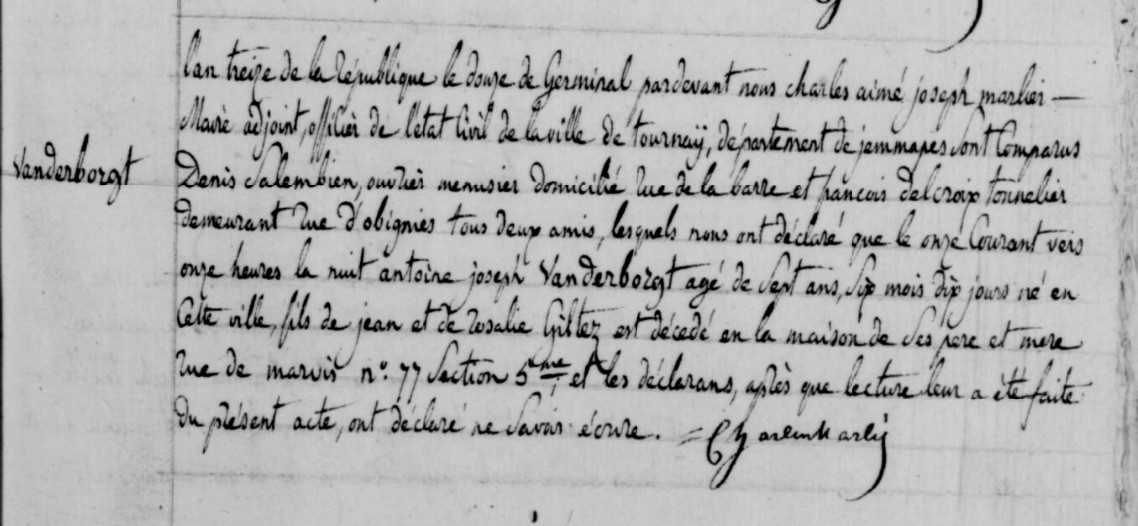 Vanderborgt
l'an treize de la République le douze de Germinal pardevant nous charles aimé joseph marlier —
Maire adjoint, officier de l'état Civil de la ville de tournay, département de jemmapes sont Comparus
Denis Salembien, ouvrier menusier domicilié rue de la barre et francois delcroix tonnelier
demeurant rue d'obignies tous deux amis, lesquels nous ont déclaré que le onze Courant vers
onze heures la nuit antoine joseph Vanderborgt agé de Sept ans, six mois dix jours né en
Cette ville, fils de jean et de rosalie Giltez est décedé en la maison de Ses pere et mere
rue de marvis n°. 77 Section 5me, et les déclarans, après que lecture leur a été faite
du présent acte, ont déclaré ne Savoir écrire.